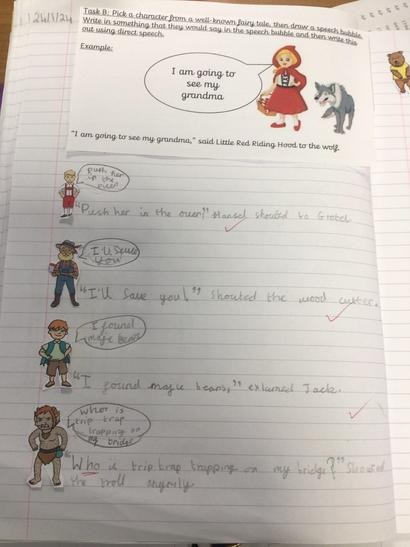 24/1/24
Task B: Pick a character from a well-known fairy tale, then draw a speech bubble.
Write in something that they would say in the speech bubble and then write this
out using direct speech.
Example:
I am going to
see my
grandma
"I am going to see my grandma," said Little Red Riding Hood to the wolf.
Push her
in the
oven
"Push her in the oven!" Hansel shouted to Gretel
I'll save
you
"I'll save you!" shouted the wood cutter.
I found
magic beans
"I found magic beans," exlamed Jack.
Who is
trip trap
trapping on
my bridge
"Who is trip trap trapping on my bridge?" Shouted
the troll angrily.